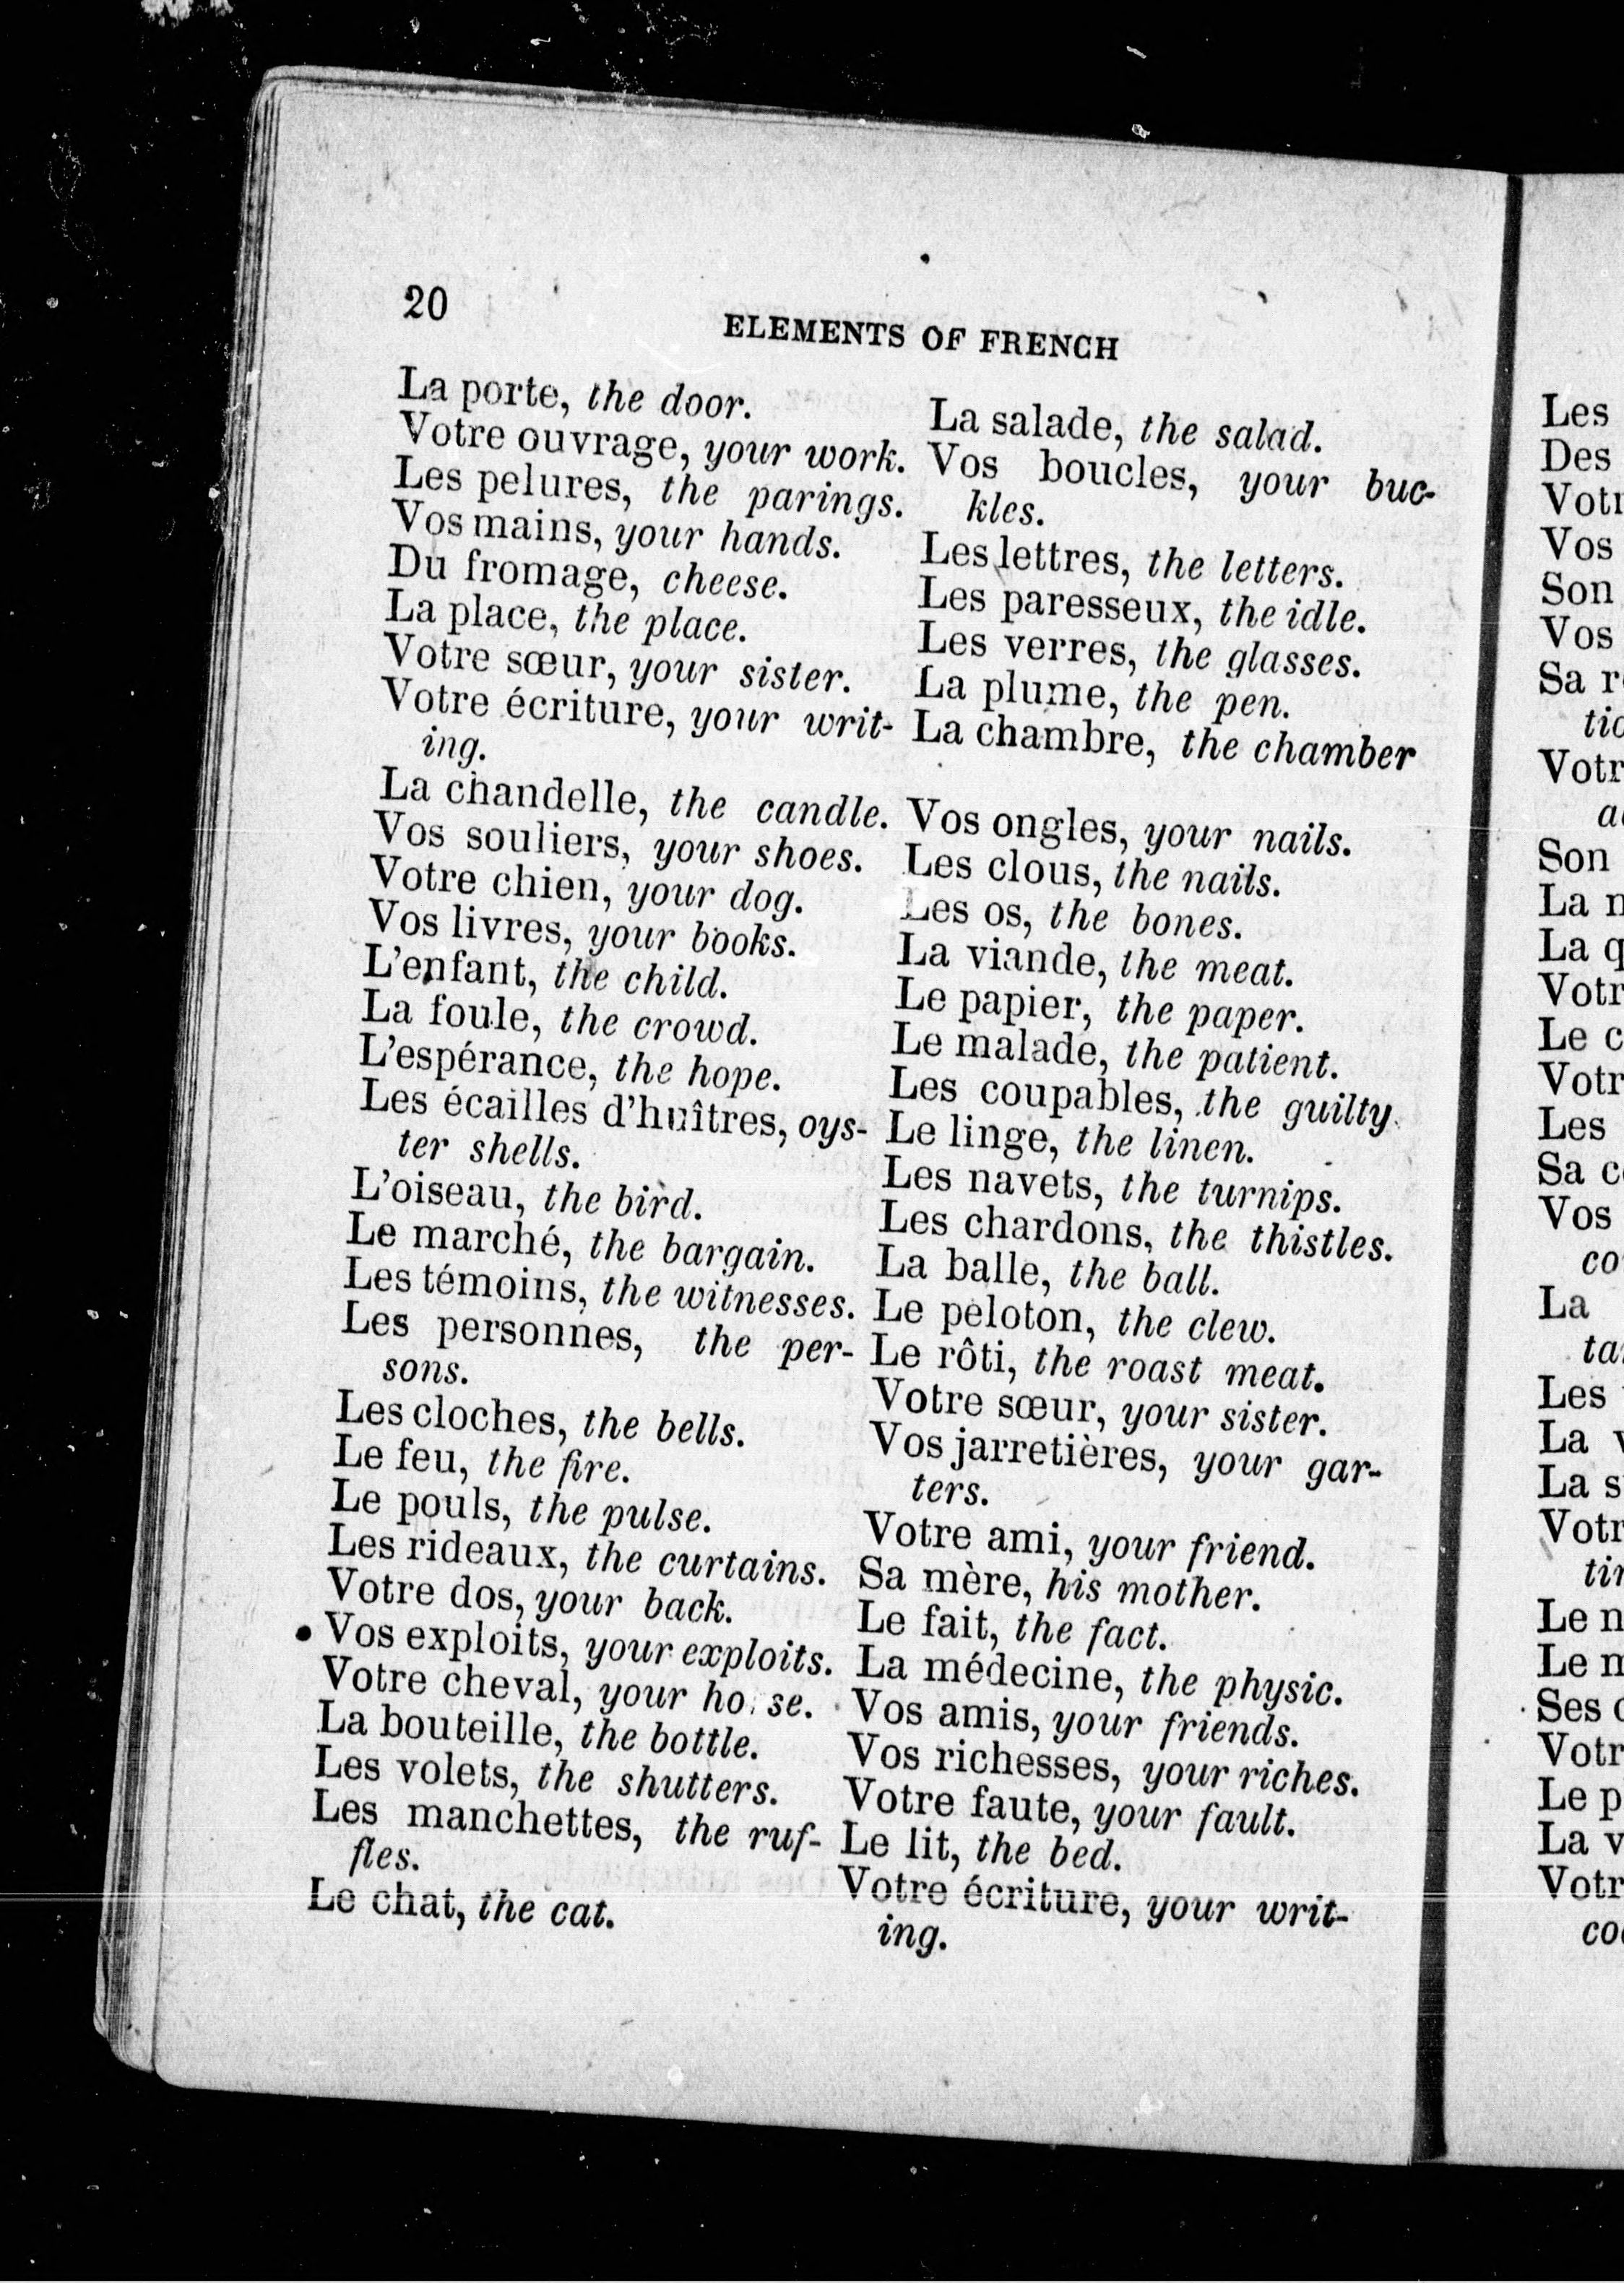 20
ELEMENTS OF FRENCH
La porte, the door.
Votre ouvrage, your work.
Les pelures, the parings.
Vos mains, your hands.
Du fromage, cheese.
La place, the place.
Votre sœur, your sister.
Votre écriture, your writ-
ing.
La chandelle, the candle.
Vos souliers, your shoes.
Votre chien, your dog.
Vos livres, your books.
L'enfant, the child.
La foule, the crowd.
L'espérance, the hope.
Les écailles d'huîtres, oys-
ter shells.
L'oiseau, the bird.
Le marché, the bargain.
Les témoins, the witnesses.
Les personnes, the per-
sons.
Les cloches, the bells.
Le feu, the fire.
Le pouls, the pulse.
Les rideaux, the curtains.
Votre dos, your back.
Vos exploits, your exploits.
Votre cheval, your horse.
La bouteille, the bottle.
Les volets, the shutters.
Les manchettes, the ruf-
fles.
Le chat, the cat.
La salade, the salad.
Vos boucles, your buc-
kles.
Les lettres, the letters.
Les paresseux, the idle.
Les verres, the glasses.
La plume, the pen.
La chambre, the chamber
Vos ongles, your nails.
Les clous, the nails.
Les os, the bones.
La viande, the meat.
Le papier, the paper.
Le malade, the patient.
Les coupables, the guilty.
Le linge, the linen.
Les navets, the turnips.
Les chardons, the thistles.
La balle, the ball.
Le peloton, the clew.
Le rôti, the roast meat.
Votre sœur, your sister.
Vos jarretières, your gar-
ters.
Votre ami, your friend.
Sa mère, his mother.
Le fait, the fact.
La médecine, the physic.
Vos amis, your friends.
Vos richesses, your riches.
Votre faute, your fault.
Le lit, the bed.
Votre écriture, your writ-
ing.
Les
Des
Vos
Son
Vos
Sa
Son
La
La
Le
Les
Sa
Vos
La
Les
La
La
Le
Le
Ses
Le
La